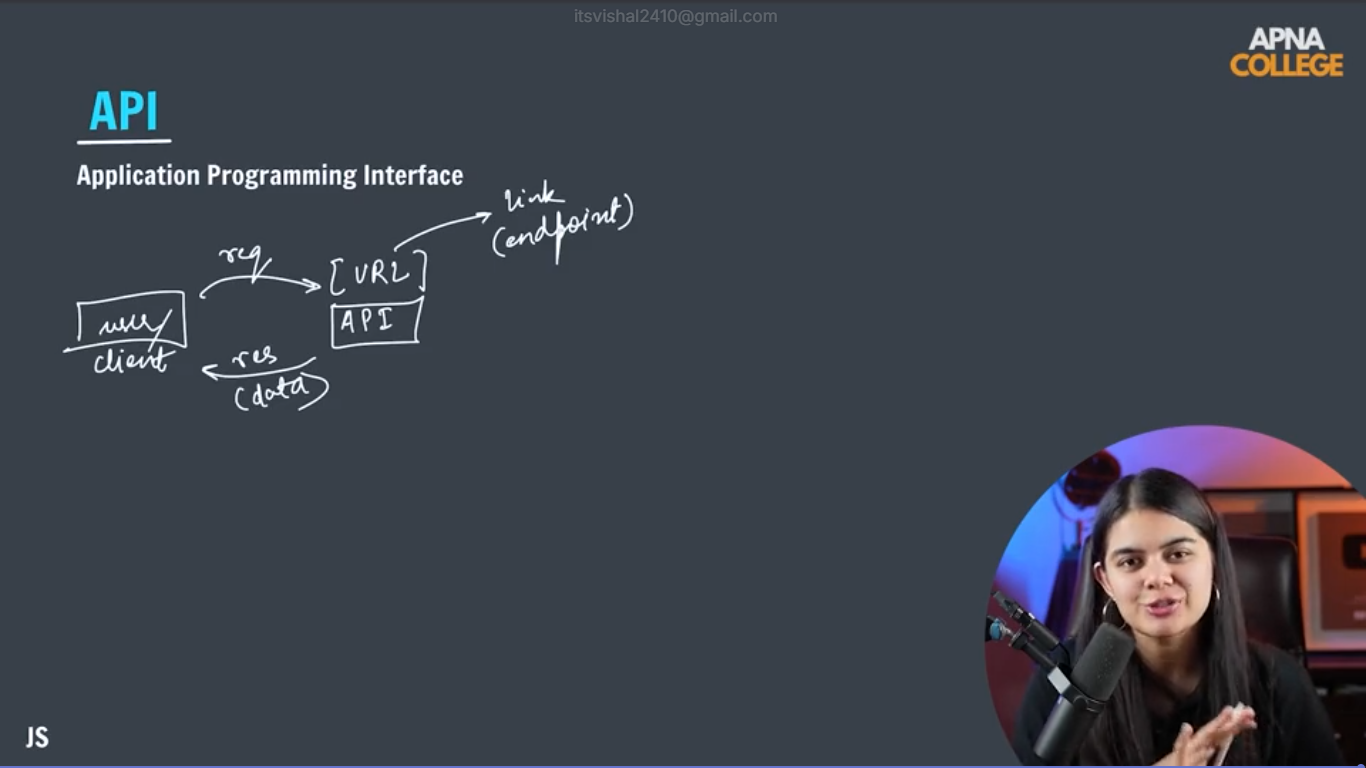 itsvishal2410@gmail.com
APNA
COLLEGE
API
Application Programming Interface
link
(endpoint)
req
[URL]
API
user
client
res
(data)
JS